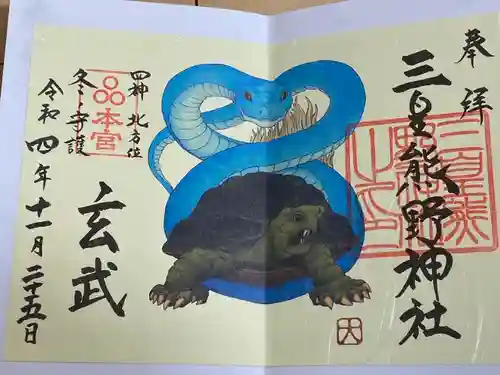 奉拝
三皇熊野神社
四神 北方位
冬・守護
本宮
玄武
令和四年十一月二十五日